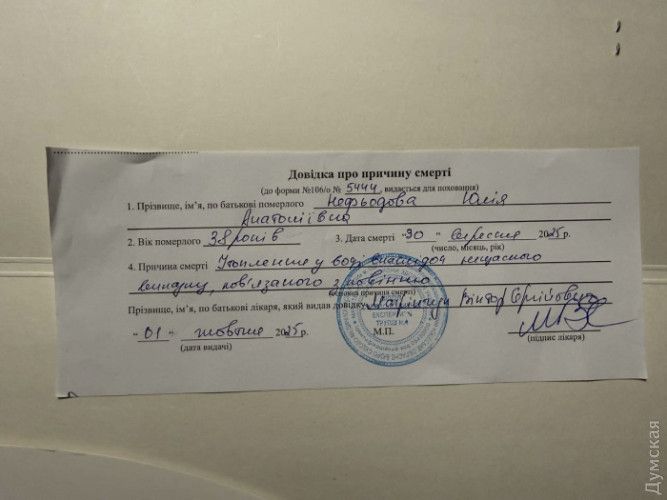 Довідка про причину смерті
(до форми №106/о № 5444, видається для поховання)
1. Прізвище, ім'я, по батькові померлого Нефьодова Юлія
Анатоліївна
2. Вік померлого 38 років 3. Дата смерті "30" вересня 2025р.
(число, місяць, рік)
4. Причина смерті Утоплення у воді внаслідок нещасного
випадку, пов'язаного з повінню
(основна причина смерті)
Прізвище, ім'я, по батькові лікаря, який видав довідку Віктор Сергійович
"01" жовтня 2025р. М.П.
(дата видачі) (підпис лікаря)
ЕКСПЕРТИЗИ
Думская